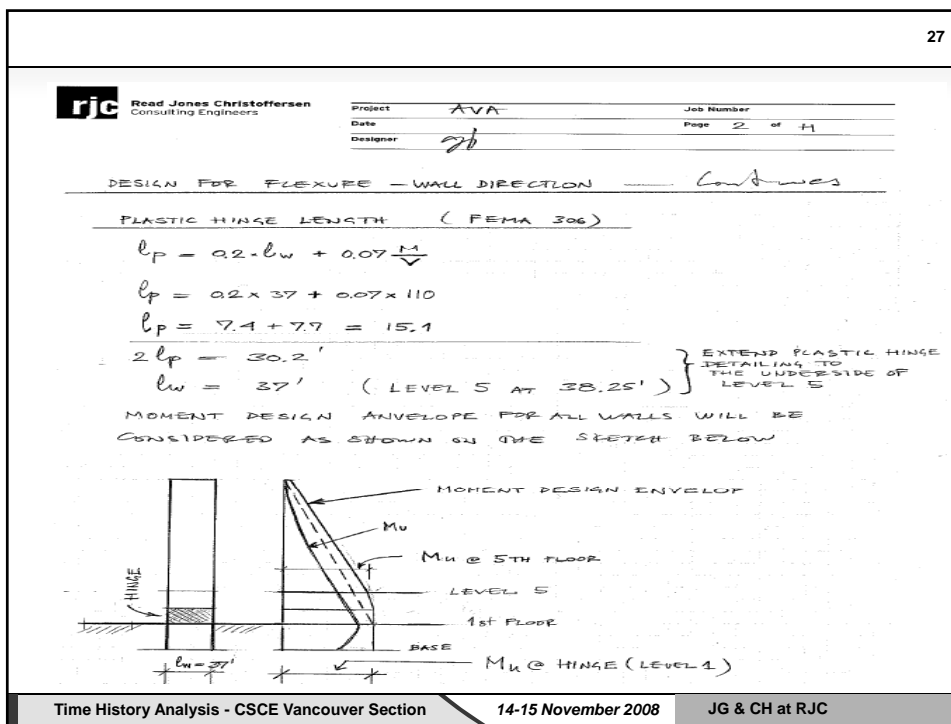 27
rjc Read Jones Christoffersen
Consulting Engineers
Project AVA Job Number
Date Page 2 of
Designer
DESIGN FOR FLEXURE — WALL DIRECTION — Continues
PLASTIC HINGE LENGTH (FEMA 306)
lp = 0.2·lw + 0.07 M/V
lp = 0.2 x 37 + 0.07 x 110
lp = 7.4 + 7.7 = 15.1
2lp = 30.2'
lw = 37' (LEVEL 5 AT 38.25')
EXTEND PLASTIC HINGE
DETAILING TO
THE UNDERSIDE OF
LEVEL 5
MOMENT DESIGN ANVELOPE FOR ALL WALLS WILL BE
CONSIDERED AS SHOWN ON THE SKETCH BELOW
MOMENT DESIGN ENVELOP
Mu
Mu @ 5TH FLOOR
HINGE
LEVEL 5
1st FLOOR
BASE
lw = 37'
Mu @ HINGE (LEVEL 1)
Time History Analysis - CSCE Vancouver Section 14-15 November 2008 JG & CH at RJC